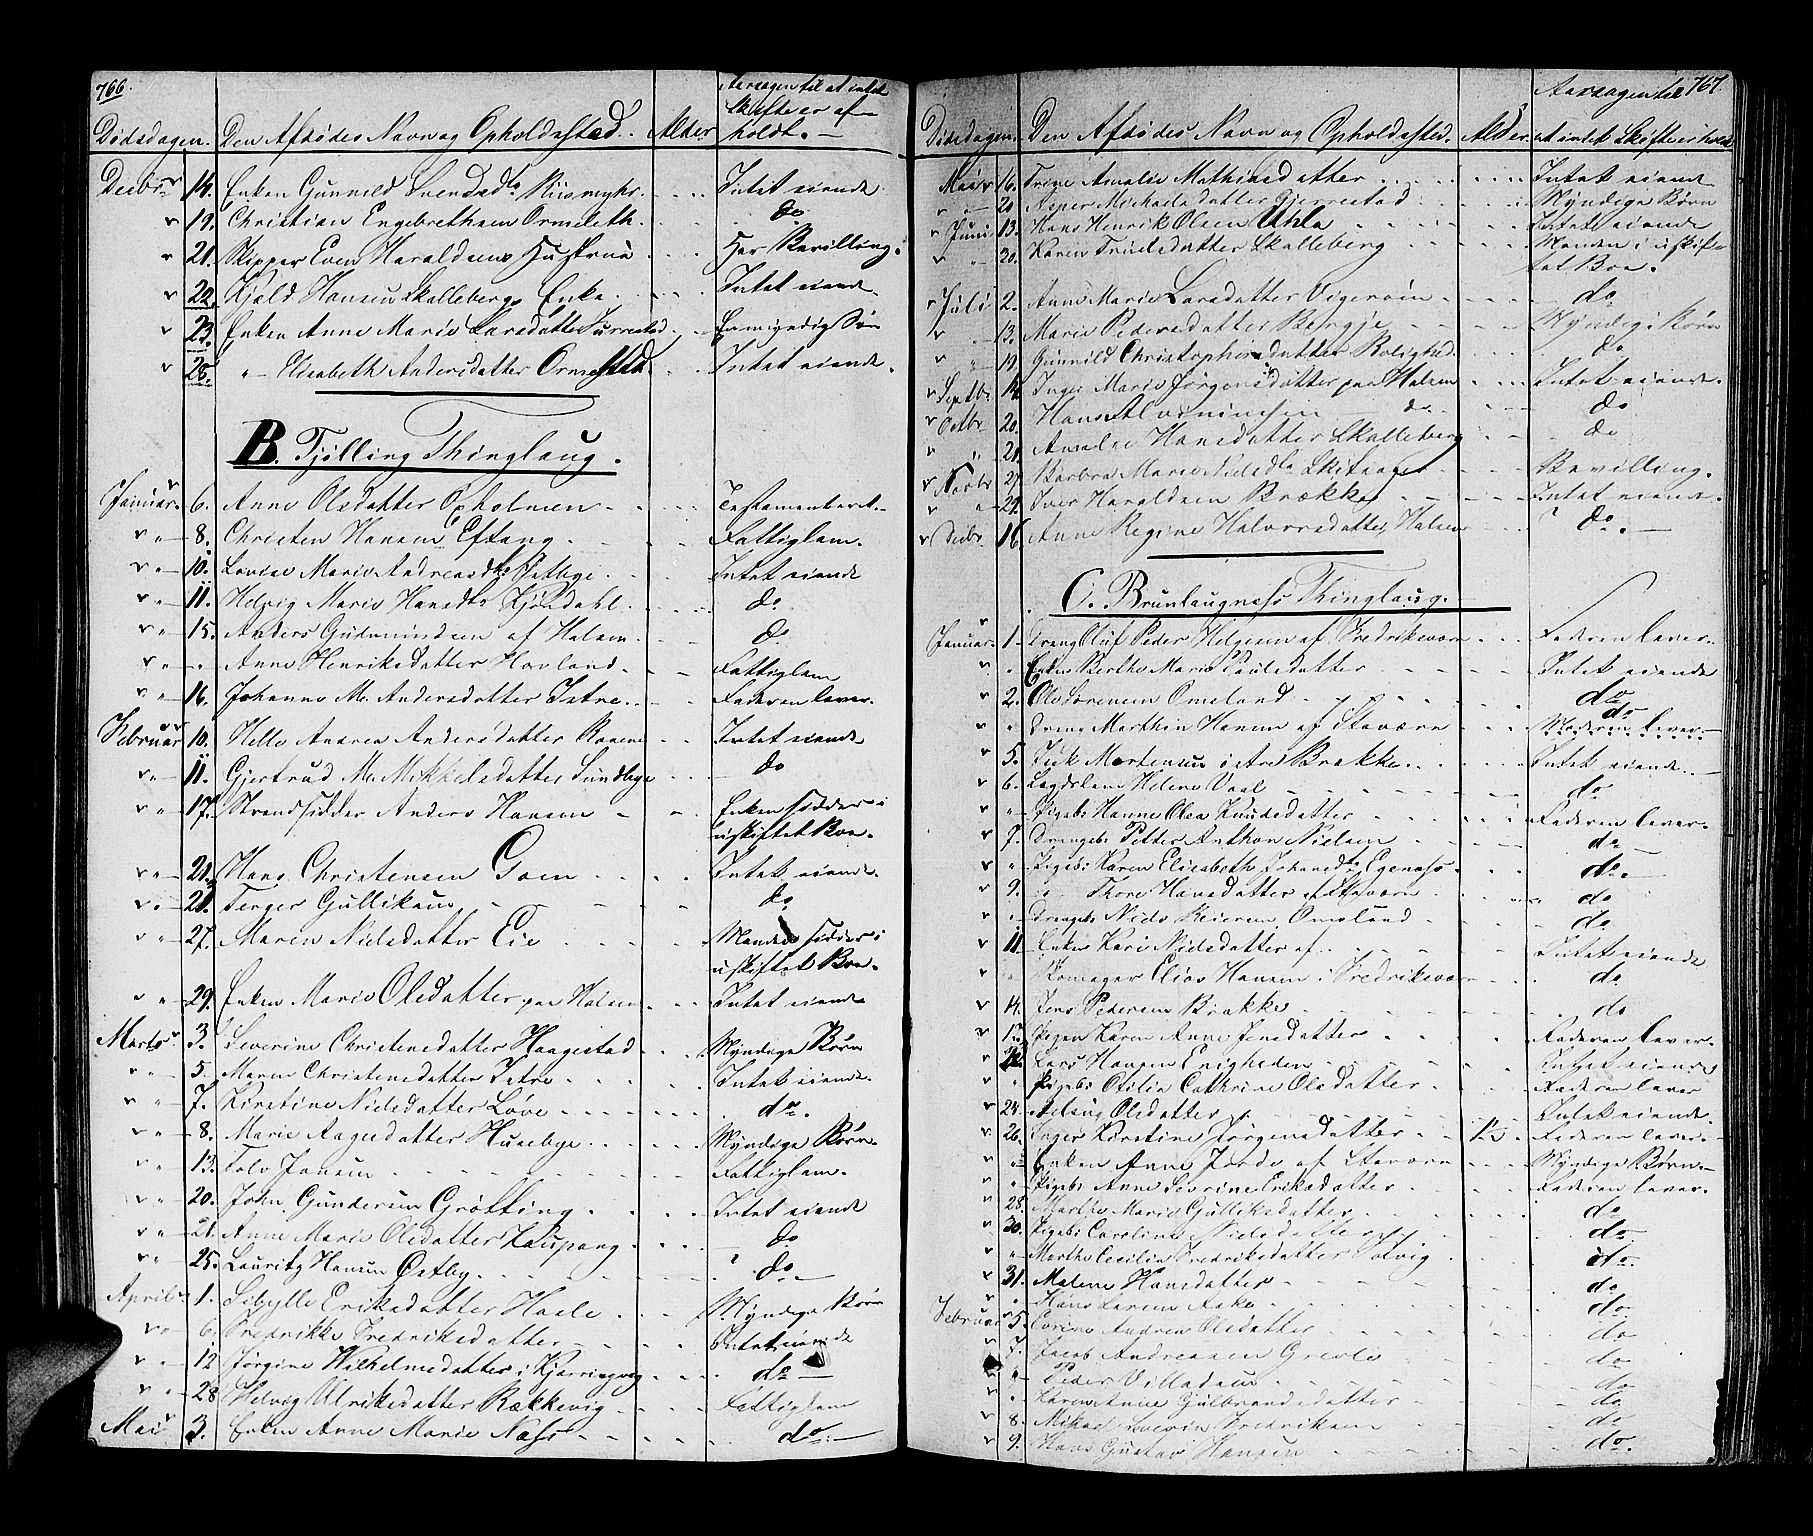 766.
Dödsdagen. Den Afdødes Navn og Opholdssted. Alder. Aarsagen til at intet Skifte er afholdt.
Decbr 14. Enken Gunnild Svendsdtr Riismyhr. Intet eiende
19. Christian Engebrethsen Ormeleth. do
21. Skipper Even Haraldsens Hustrue Har Bevilling.
22. Kjøld Hansen Skallebergs Enke. Intet eiende.
23. Enken Anne Marie Larsdatter Eenmyndig Søn
28. " Elisabeth Andersdatter Ormestad Intet eiende.
B. Tjølling Thinglaug.
Januar. 6. Anne Olsdatter Opholmen Testamenteret.
" 8. Christen Hansen Eftang. Fattiglem.
" 10. Lovise Marie Andreasdtr Intet eiende
" 11. Helvig Marie Hansdtr do
" 15. Anders Gudmundsen af Halsen do
" " Anne Henriksdatter Hovland Fattiglem
" 16. Johanne M. Andersdatter Istre Faderen lever.
Februar 10. Helle Andrea Andersdatter Intet eiende
" 11. Gjertrud M. Mikkelsdatter Sundbye do
" 17. Strandsidder Anders Hansen Enken sidder i
uskiftet Boe.
" 21. Hans Christensen Gom Intet eiende.
" 21. Terger Gulliksen do
" 27. Maren Nielsdatter Eie Manden sidder i
uskiftet Boe.
" 29. Enken Marie Olsdatter paa Halsen Intet eiende
Marts 3. Severine Christensdatter Haagestad Myndige Børn
" 5. Maren Christensdatter Istre Intet eiende.
" 7. Kirstine Nielsdatter Løve do.
" 8. Marie Aagesdatter Huusebye Myndige Børn
" 13. Tolv Jansen Fattiglem.
" 20. John Gundersen Grøtting Intet eiende
" 21. Anne Marie Olsdatter Kaupang do
" 25. Lauritz Hansen Østby. do
April 1. Sibylle Eriksdatter Hasle Myndige Børn
" 6. Fredrikke Fredriksdatter Intet eiende
" 12 Jørgine Wilhelmsdatter i Kjerringvig do
" 28 Helvig Ulriksdatter Rækkevig Fattiglem
Mai 3. Enken Anne Marie Næss do.
767.
Dödsdagen. Den Afdødes Navn og Opholdssted. Alder. Aarsagen til at intet Skifte er holdt
Mai 16. Trine Amalie Mathisdatter Intet eiende
" 20 Asper Michelsdatter Gjerrestad Myndige Børn
Juni 13. Hans Henrik Olsen Uhla Intet eiende
" 30. Karen Truelsdatter Skalleberg Manden i uskiftet Boe.
Juli 2. Anne Marie Larsdatter do
" 13. Marie Pedersdatter Bergje Myndige Børn
" 19. Gunnild Christophersdatter Bolighed do
Septbr 14. Inger Marie Jørgensdatter paa Halsen Intet eiende.
Octbr 20. Hans do do
" 21. Amalie Hansdatter Skalleberg do
Novbr 27. Barbra Marie Nielsdtr Bevilling.
" 29. Iver Haraldsen Brække Intet eiende.
Decbr 16. Anne Regine Halvorsdatter, Halsen do.
C. Brunlaugnæss Thinglaug.
Januar 1. Dreng Oluf Peder Helgesen af Fredriksværn Faderen lever.
" Enken Berthe Marie Poulsdatter Intet eiende
2. Ole Sørensen Omsland do
" Dreng Marthin Hansen af Staværn do
Moderen lever.
5. Fisk Mortensen i Brække Intet eiende.
6. Lægdslem Helene Vaal do
" Pigeb: Hanne Olea Knudsdatter Faderen lever.
7. Drengeb: Petter Anthon Nielsen do
" Pigeb: Karen Elisabeth Johansdtr Egenæss do.
9. Thore Hansdatter af Staværn do
" Drengeb: Niels Reiersen Omsland do
11. Enken Kari Nielsdatter af Intet eiende
" Skomager Elias Hansen i Fredriksværn do
14. Jens Pedersen Brække do
17. Pigen Karen Anne Jensdatter Faderen lever.
22. Lars Hansen Enigheden Intet eiende
" Pigeb: Otilia Cathrine Olsdatter Faderen lever
24. Aslaug Olsdatter Intet eiende.
26. Inger Kirstine Jørgensdatter Faderen lever.
" Enken Anne Jorde af Staværn Myndige Børn.
" Pigeb: Anne Severine Eriksdatter Faderen lever.
28. Marthe Marie Gulliksdatter do
30. Pigeb: Caroline Nielsdatter do
" Marthe Cecilia Fredriksdatter Solvig do.
31. Malene Hansdatter do
" Hans Larsen Aske do
Februar 5. Corine Andrea Olsdatter do
7. Jacob Andreassen Grevle do
" Peder Villadsen do
" Karen Anne Gulbrandsdatter do
8. Mikael Severin Fredriksen do
9. Hans Gustav Hansen do.